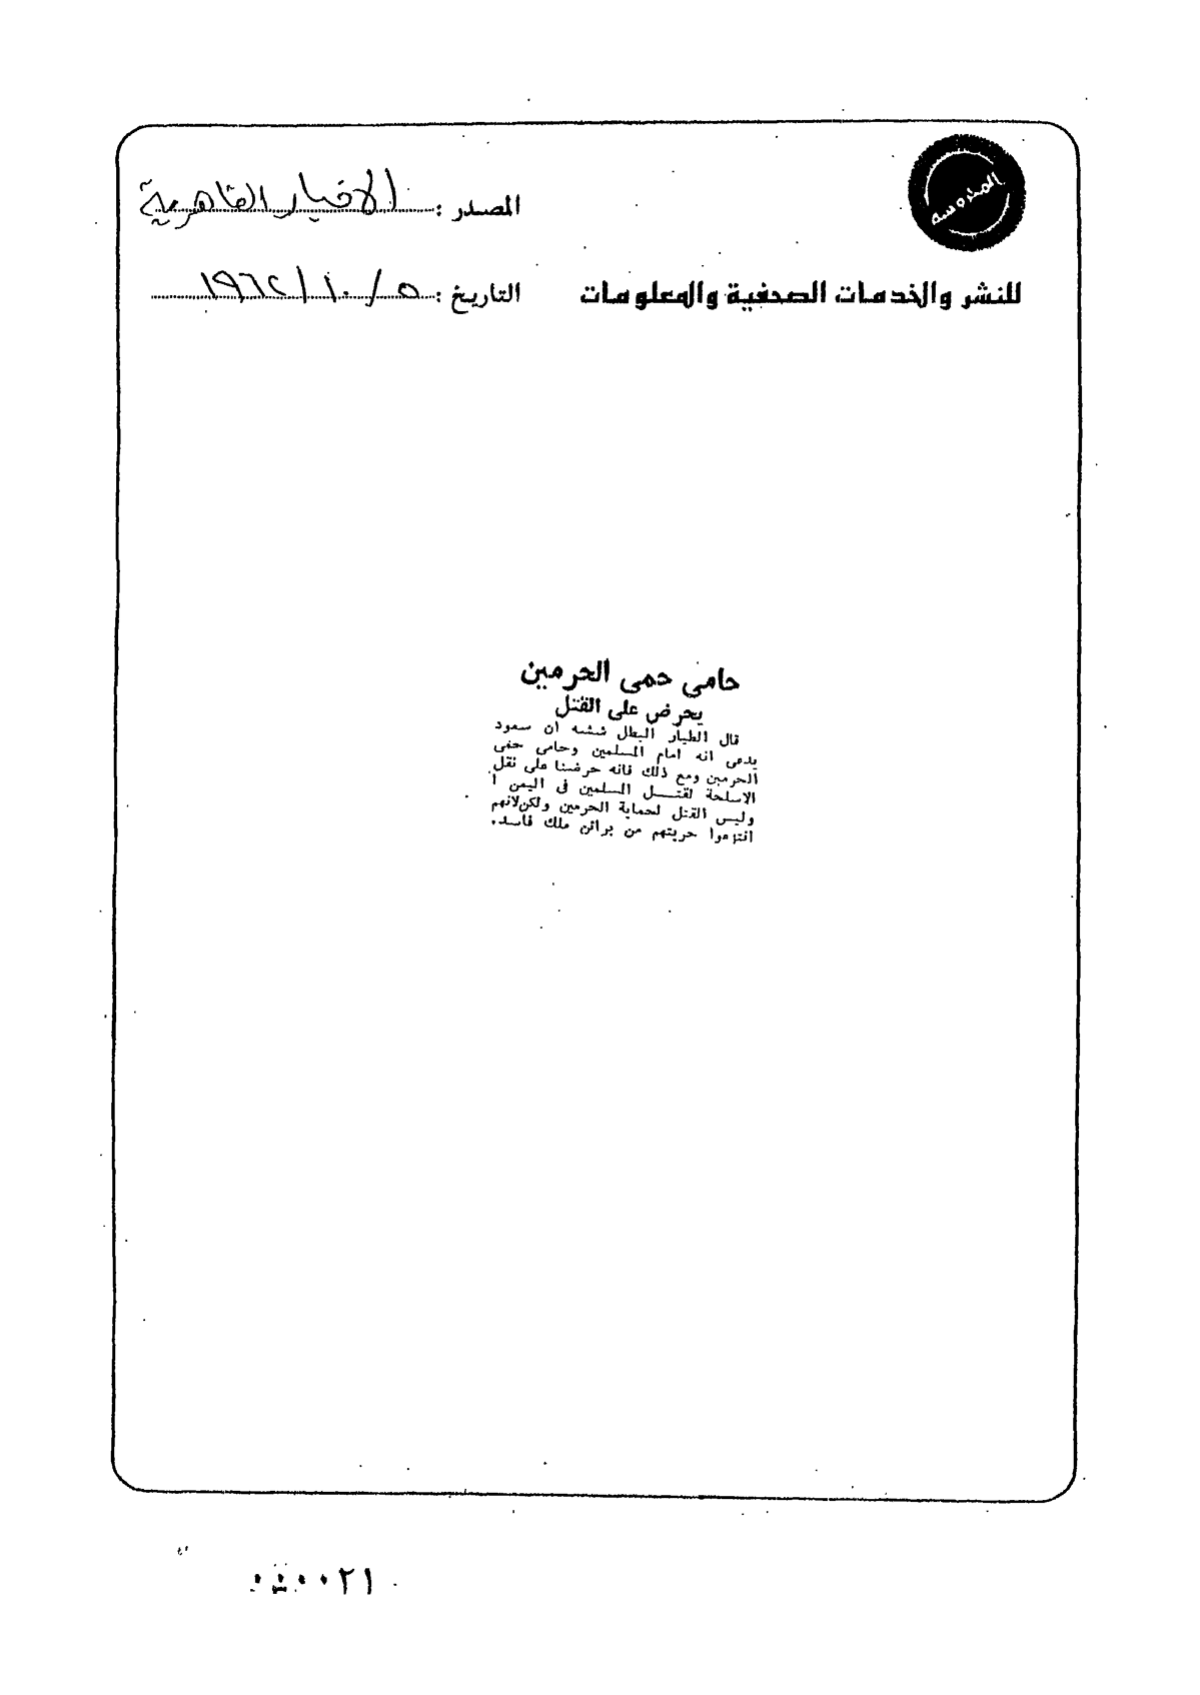 المحروسة
المصدر : الاخبار القاهرية
للنشر والخدمات الصحفية والمعلومات
التاريخ : ٥ / ١٠ / ١٩٦٢
حامى حمى الحرمين
يحرض على القتل
قال الطيار البطل ششه ان سعود
يدعى انه امام المسلمين وحامى حمى
الحرمين ومع ذلك فانه حرضنا على نقل
الاسلحة لقتـــل المسلمين فى اليمن !
وليس القتل لحماية الحرمين ولكن لانهم
انتزعوا حريتهم من براثن ملك فاسد .